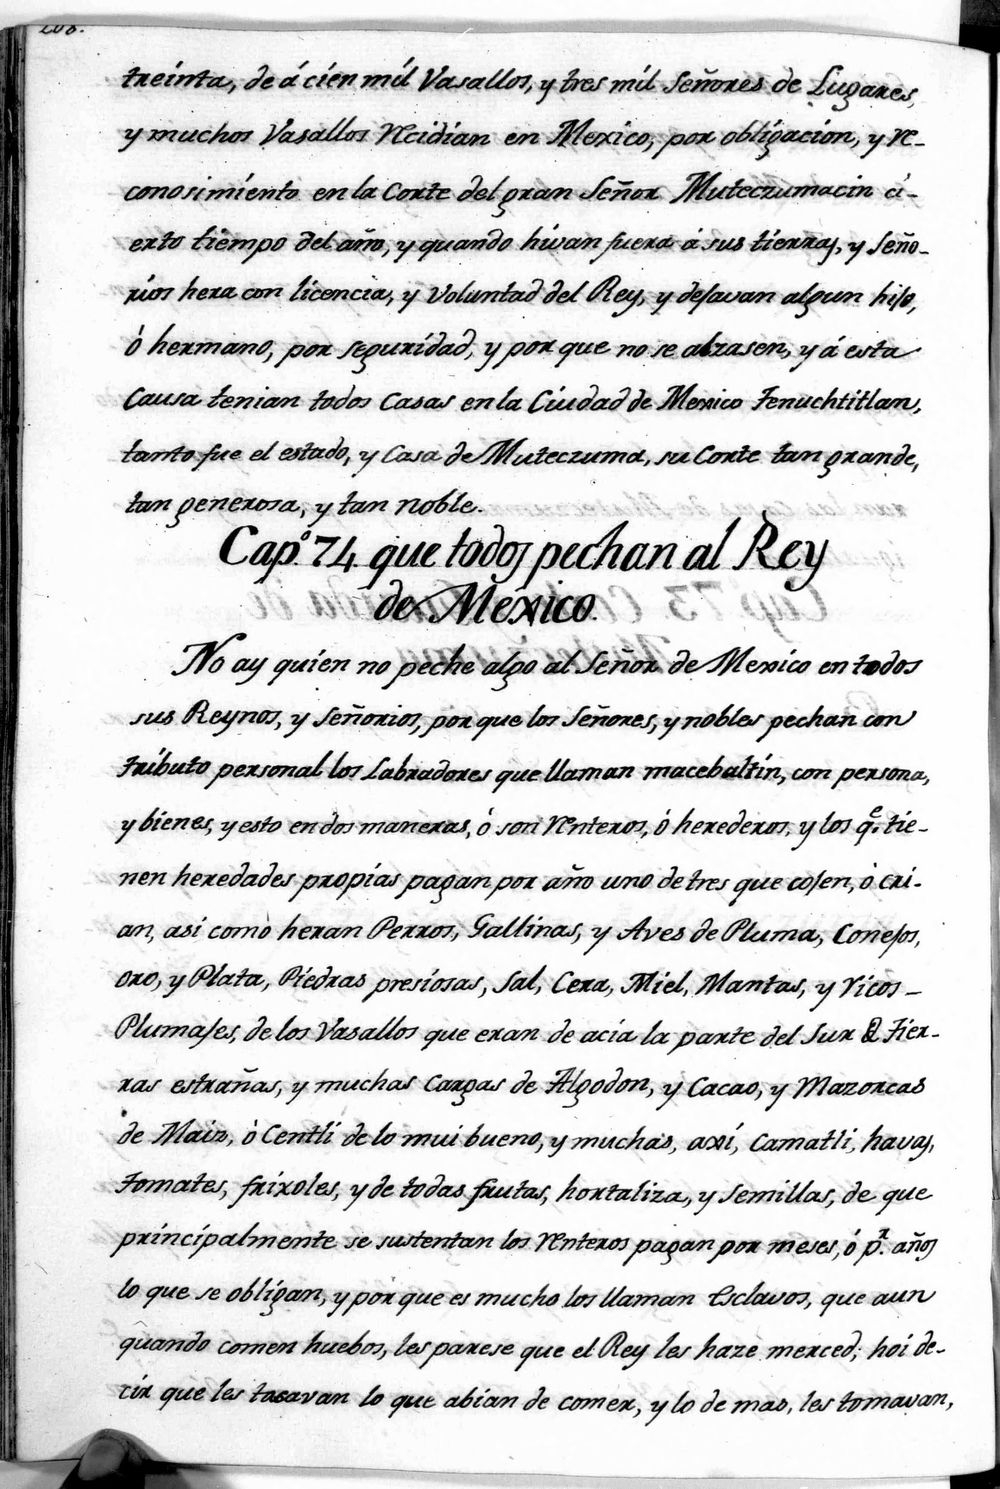 208.
treinta, de á cien mil Vasallos, y tres mil Señores de Lugares,
y muchos Vasallos Recidian en Mexico, por obligacion, y Re-
conosimiento en la Corte del gran Señor Muteczumacin ci-
erto tiempo del año, y quando hivan fuera á sus tierras, y Seño-
rios hera con licencia, y Voluntad del Rey, y dejavan algun hijo,
ó hermano, por seguridad, y por que no se alzasen, y á esta
Causa tenian todos Casas en la Ciudad de Mexico Tenuchtitlan,
tanto fue el estado, y Casa de Muteczuma, su Corte tan grande,
tan generosa, y tan noble.
Capº. 74. que todos pechan al Rey
de Mexico.
No ay quien no peche algo al Señor de Mexico en todos
sus Reynos, y Señorios, por que los Señores, y nobles pechan con
tributo personal los Labradores que llaman macebaltin, con persona,
y bienes, y esto en dos maneras, ò son Renteros, ò herederos, y los qe. tie-
nen heredades propias pagan por año uno de tres que cojen, ò cri-
an, asi como heran Perros, Gallinas, y Aves de Pluma, Conejos,
oro, y Plata, Piedras presiosas, Sal, Cera, Miel, Mantas, y Ricos
Plumajes, de los Vasallos que eran de acia la parte del Sur Tier-
ras estrañas, y muchas cargas de Algodon, y Cacao, y Mazorcas
de Maiz, ò Centli de lo mui bueno, y muchas, axí, Camatli, havas,
Tomates, frixoles, y de todas frutas, hortaliza, y Semillas, de que
principalmente se sustentan los Renteros pagan por meses, ó pr. años
lo que se obligan, y por que es mucho los llaman Esclavos, que aun
quando comen huebos, les parese que el Rey les haze merced; hoi de-
cir que les tasavan lo que abian de comer, y lo de mas, les tomavan,